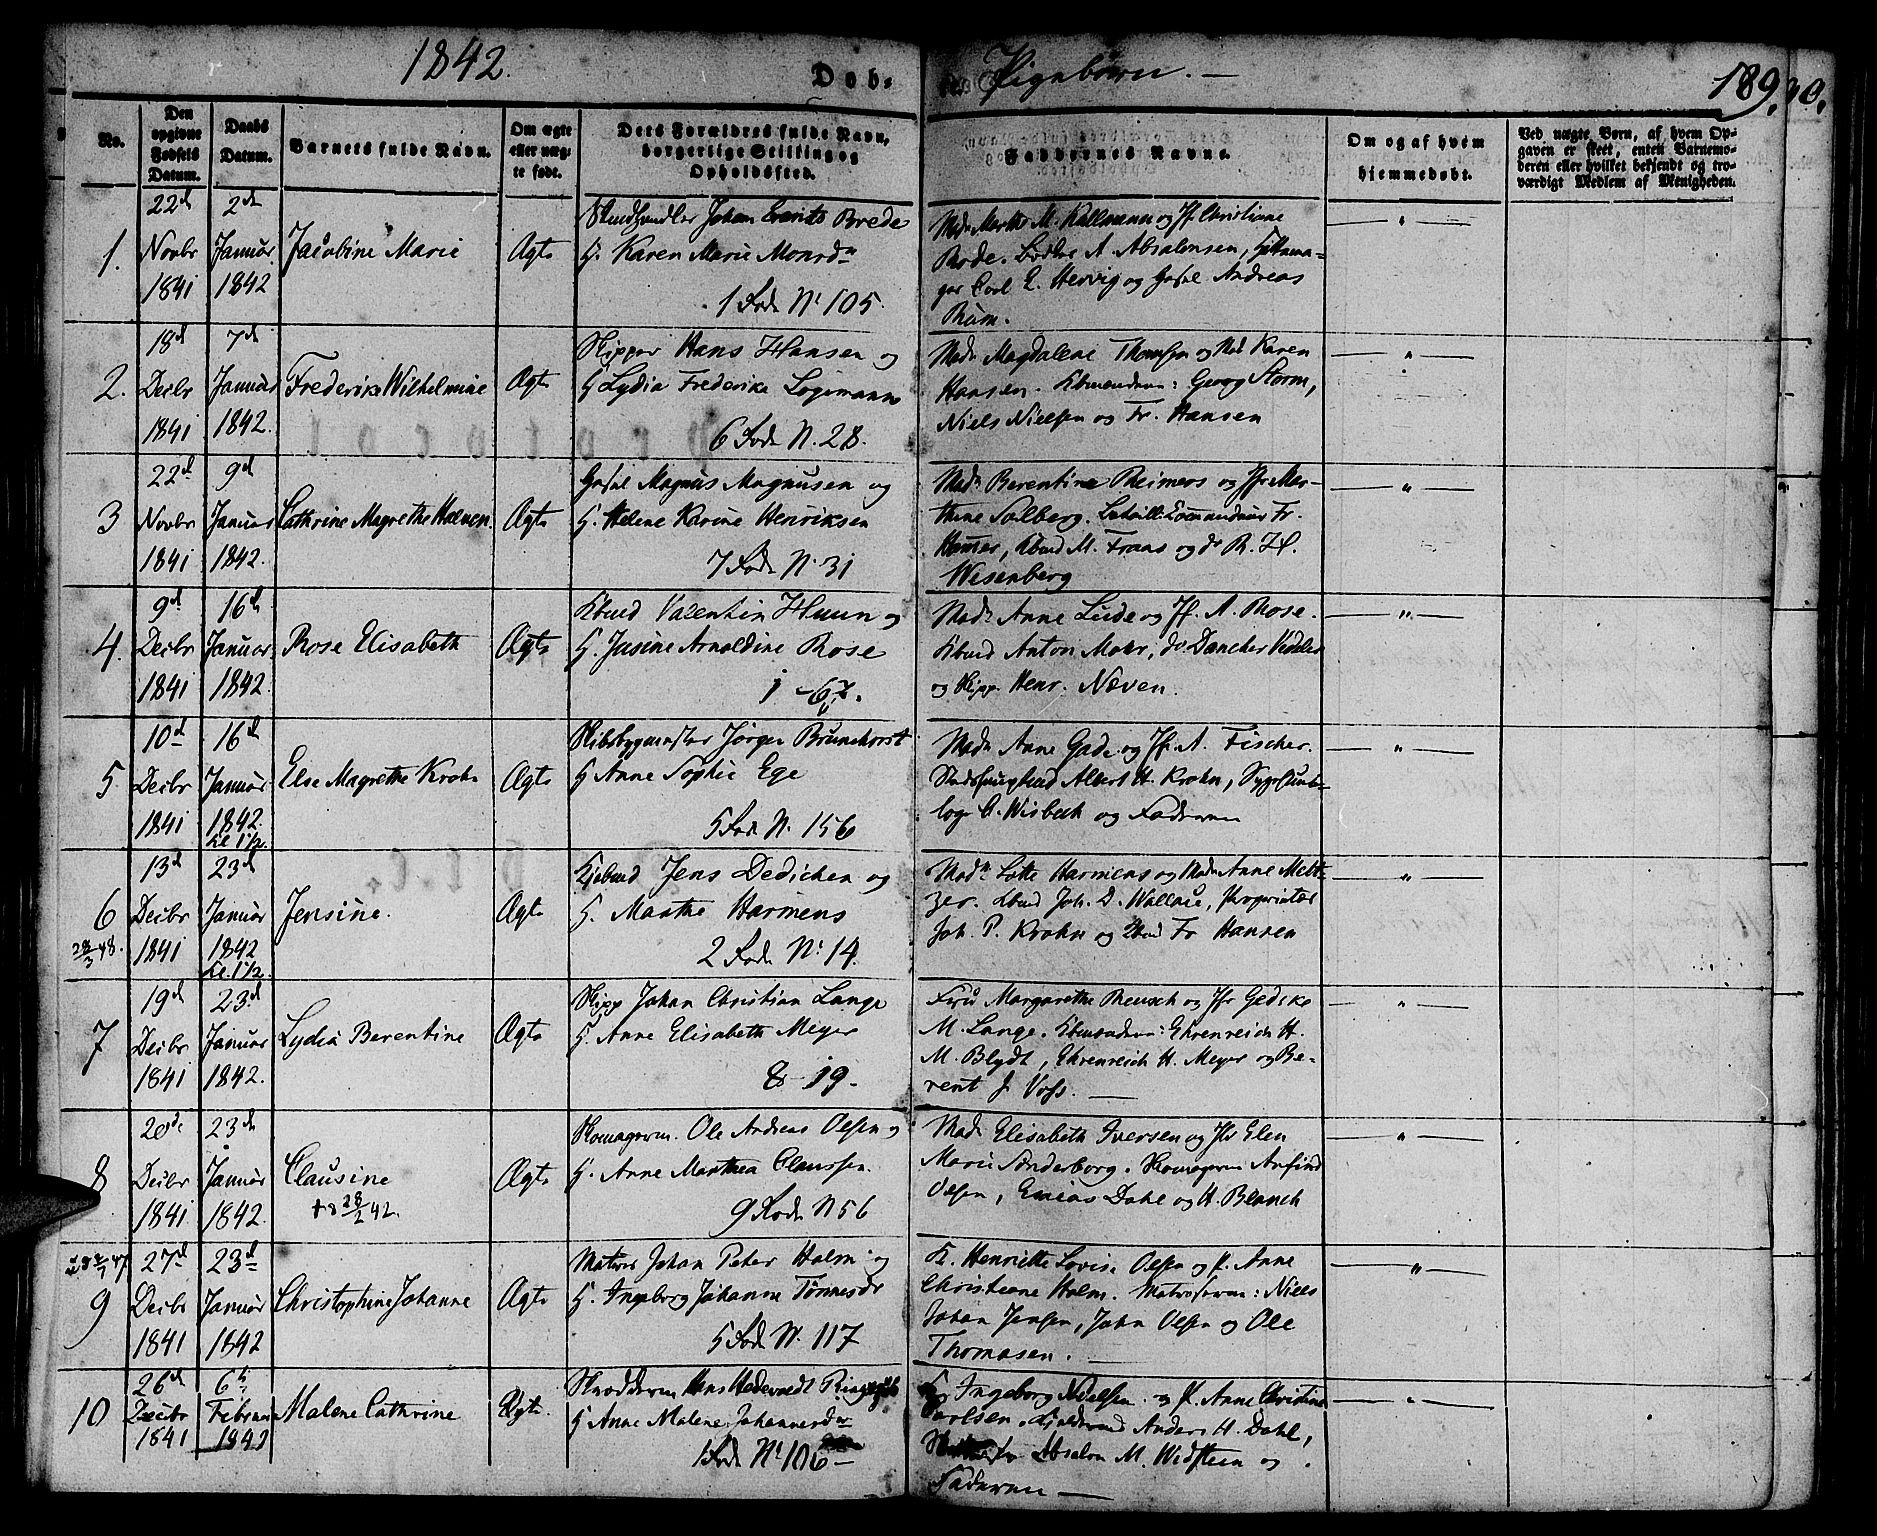 1842.
Døb-
Pigebørn. —
189.
No.
Den opgivne Fødsels Datum.
Daabs Datum.
Barnets fulde Navn.
Om ægte eller uægte født.
Dets Forældres fulde Navn, borgerlige Stilling og Opholdssted.
Faddernes Navne.
Om og af hvem hjemmedøbt.
Ved uægte Børn, af hvem Opgaven er skeet, enten Barnemoderen eller hvilket bekjendt og troværdigt Medlem af Menigheden.
1.
22d Novbr 1841
2de Januar 1842
Jacobine Marie
Ægte
Johan Brede
H. Karen Marie Monrdr
1 Fode N. 105.
M. Kullmann og Jfr Christiane
A. Absalonsen,
Carl E. Hervig og Andreas
2.
18d Decbr 1841
7de Januar 1842.
Frederike Wilhelmine
Ægte
Skipper Hans Hansen og
H Lydia Frederike Logemann
6 Fode N. 28.
Mad. Magdalene Thomsen og Mad Karen
Hansen. Kbmændene: Georg Storm,
Niels Nielsen og Fr. Hansen
3
22d Novbr 1841
9d Januar 1842.
Cathrine Magrethe Helene
Ægte
Magnus Magnusen og
H. Helene Karine Henriksen
7 Fode N. 31
Mad. Berentine Reimers og Jfr Mar-
thine Solberg. Fr.
M. Fraas og do R. H.
Wesenberg
4.
9d Decbr 1841
16de Januar 1842.
Rose Elisabeth
Ægte
Kbmd Valentin Huun og
H. Jasine Arnoldine Rose
1 - 67.
Mad. Anne Lude og Jf. A. Rose.
Kbmd Anton Mohr, do Dancher Vedeler
og Skipp. Henr. Næven.
5
10d Decbr 1841
16d Januar 1842.
Kl. 1½.
Else Magrethe Krohn
Ægte
Skibsbygmester Jørgen Brunchorst
H Anne Sophie Ege
5 Fode N. 156
Mad. Anne Gade og Jfr. A. Fischer.
Albert H. Krohn,
C. Wisbech og Faderen
6
28/3 48.
13d Decbr 1841
23d Januar 1842
Kl. 1½.
Jensine.
Ægte
Kjøbmd Jens Dedichen og
H. Marthe Harmens
2 Fode N. 14.
Mad. Lotte Harmens og Mad. Anne Melt-
zer. Kbmd Joh. D. Wallace, Proprietær
Joh. P. Krohn og Kbmd Fr Hansen
7
19d Decbr 1841
23d Januar 1842.
Lydia Berentine
Ægte
Skipp Johan Christian Lange
H. Anne Elisabeth Meyer
8 - 19.
Fru Margarethe Reusch og Jfr Gedske
M. Lange. Kbmændene: Ehrenreich H.
M. Blydt, Ehrenreich H. Meyer og Be-
rent J. Voss. —
8
20de Decbr 1841
23de Januar 1842.
Clausine
Ægte
Skomagersv. Ole Andreas Olsen og
H. Anne Marthea Claussen.
9 Fode N 56
Mad. Elisabeth Iversen og Jfr Elen
Marie Sønderborg. Skomagersv. Arfind
Olsen, Enias Dahl og H. Blanck
9
27d Decbr 1841
23d Januar 1842
Christophine Johanne
Ægte
Matros Johan Peter Holm og
H. Ingeborg Johanne Tønnesdr
5 Fode N. 117
K. Henriette Lovise Olsen og P. Anne
Christiane Holm. Matroserne: Niels
Johan Jensen, John Olsen og Ole
Thomasen. —
10
26d Decbr 1841
6te Februar 1842
Malene Cathrine
Ægte.
Skræddersv. Hans
H Anne Malene Johannesdr
1 Fode N. 106 —
K. Ingeborg Nielsen og P. Anne Christine
Carlsen. Anders H. Dahl,
Absalon M. Widsteen og
Faderen —